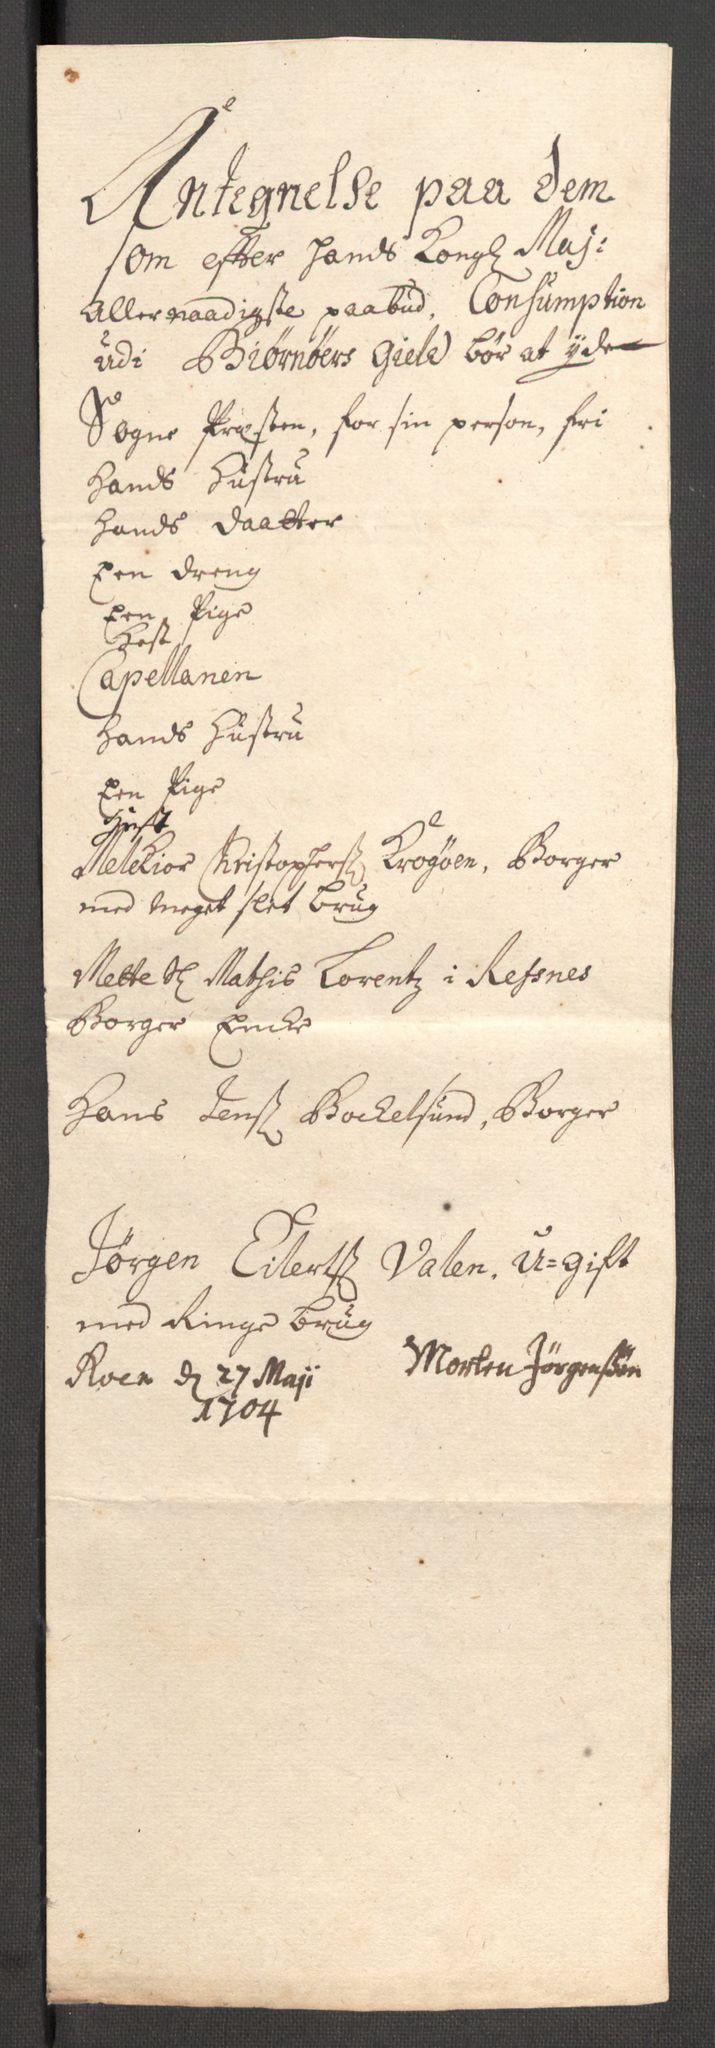 Antegnelse paa dem
som efter hands Kongl Maj:
allernaadigste paabud, Consumption
udi Biørnøers Gield bør at yde
Sogne Præsten, for sin person, fri
hands Hustru
hands daatter
Een dreng
Een Pige
Hest
Capellanen
hands Hustru
Een Pige
Hest
Melchior Christophers Krogøen, Borger
med meget slet brug
Mette Sl Mathis Lorentz i Refsnes
Borger Encke
Hans Jens Bockelsund, Borger
Jørgen Eilerts Valen, U=gift
med Ringe brug
Roen d 27 Maji
1704
Morten Jørgensøn